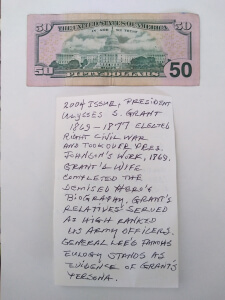 THE UNITED STATES OF AMERICA
IN GOD WE TRUST
50
50
FIFTY DOLLARS
50
2004 ISSUE, PRESIDENT
ULYSSES S. GRANT
1869-1877 ELECTED
RIGHT CIVIL WAR
AND TOOK OVER PRES.
JOHNSON'S WORK, 1869.
GRANT'S WIFE
COMPLETED THE
DEMISED HERO'S
BIOGRAPHY. GRANT'S
RELATIVES SERVED
AS HIGH RANKED
US ARMY OFFICERS.
GENERAL LEE'S FAMOUS
EULOGY STANDS AS
EVIDENCE OF GRANT'S
PERSONA.